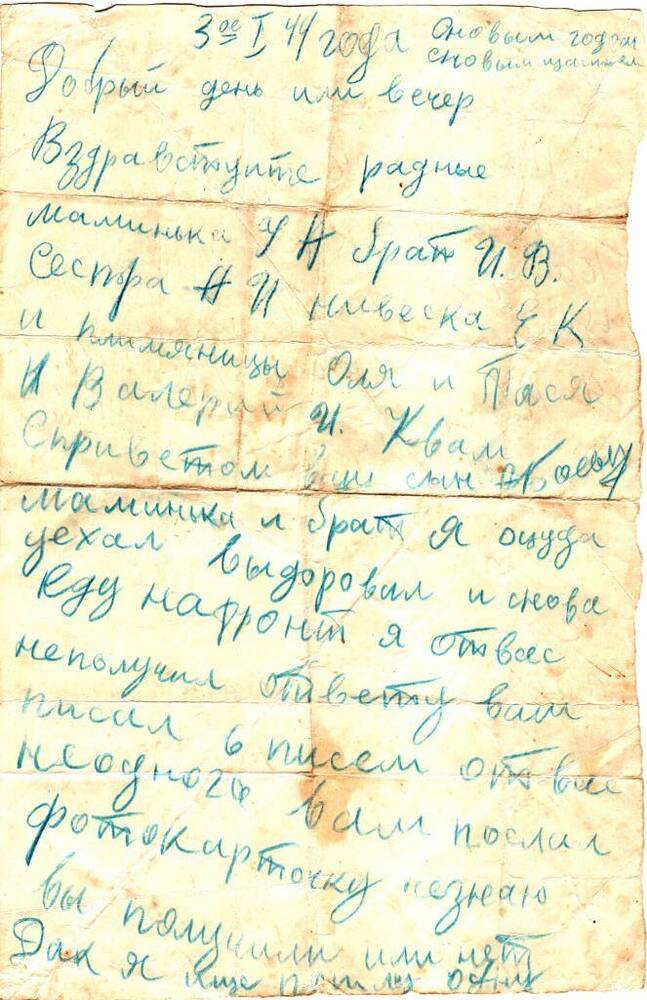 3ое I 44 года
Сновым годом
сновым щастем
Добрый день или вечер
Вздравствуите радные
маминька У А брат И. В.
Сестра А И нивеска Е К
и плимяницы Оля и Тася
И Валерий И. Квам
Сприветом ваш сын
маминька и брат я оцуда
уехал выдоровил и снова
еду нафронт я отвас
неполучил ответу вам
писал 6 писем отвас
неодного вам послал
фотокарточку незнаю
вы получили или нет
Дак я ище пошлю одну